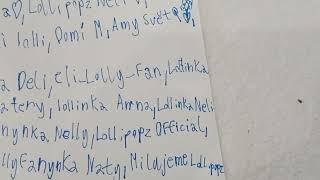 a♡, Lollipopz Neli
i lolli, Domi M, Amy Svět
a Deli, Eli_Lolly_Fan, Lolinka
atery, lollinka Anna, Lollinka Neli
nynka Nelly, Lollipopz Official,
llyFanynka Naty, Milujeme Lollipopz